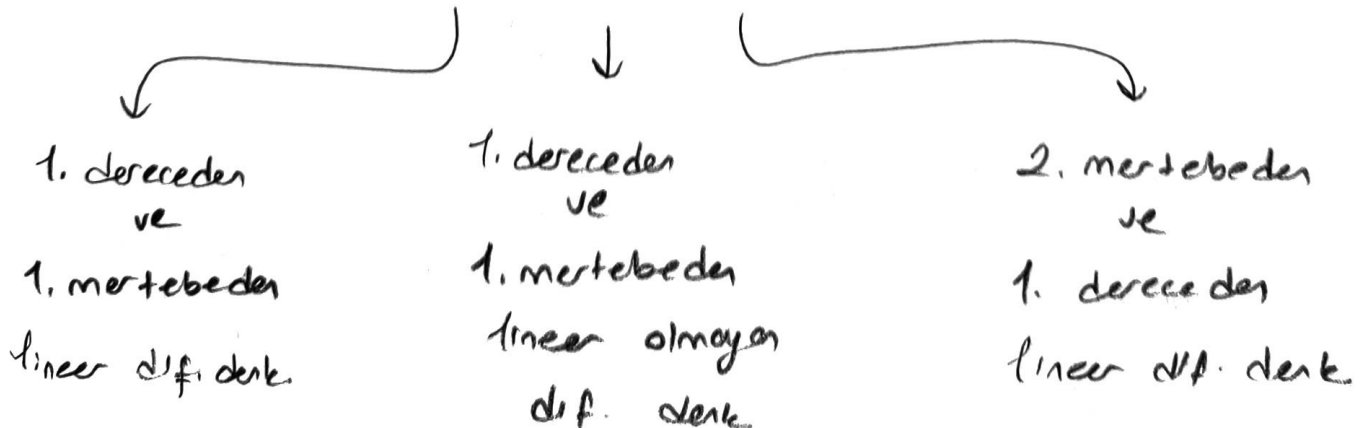 1. dereceden
ve
1. mertebeden
lineer dif. denk.
1. dereceden
ve
1. mertebeden
lineer olmayan
dif. denk
2. mertebeden
ve
1. dereceden
lineer dif. denk